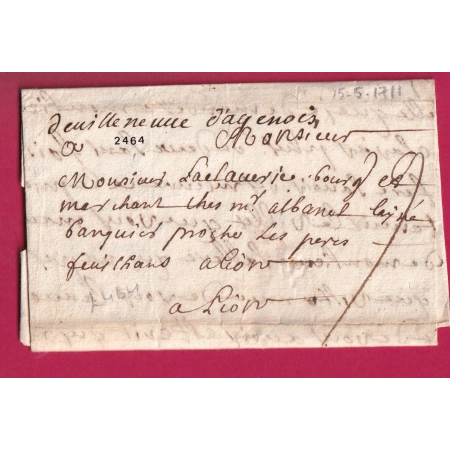 15-5-1711
deuilleneuue d'agenois
A Monsieur
2464
Monsieur Laclauerie bourg et
merchant ches mr albanel layné
banquier proche les peres
feuilhans a Lion
a Lion